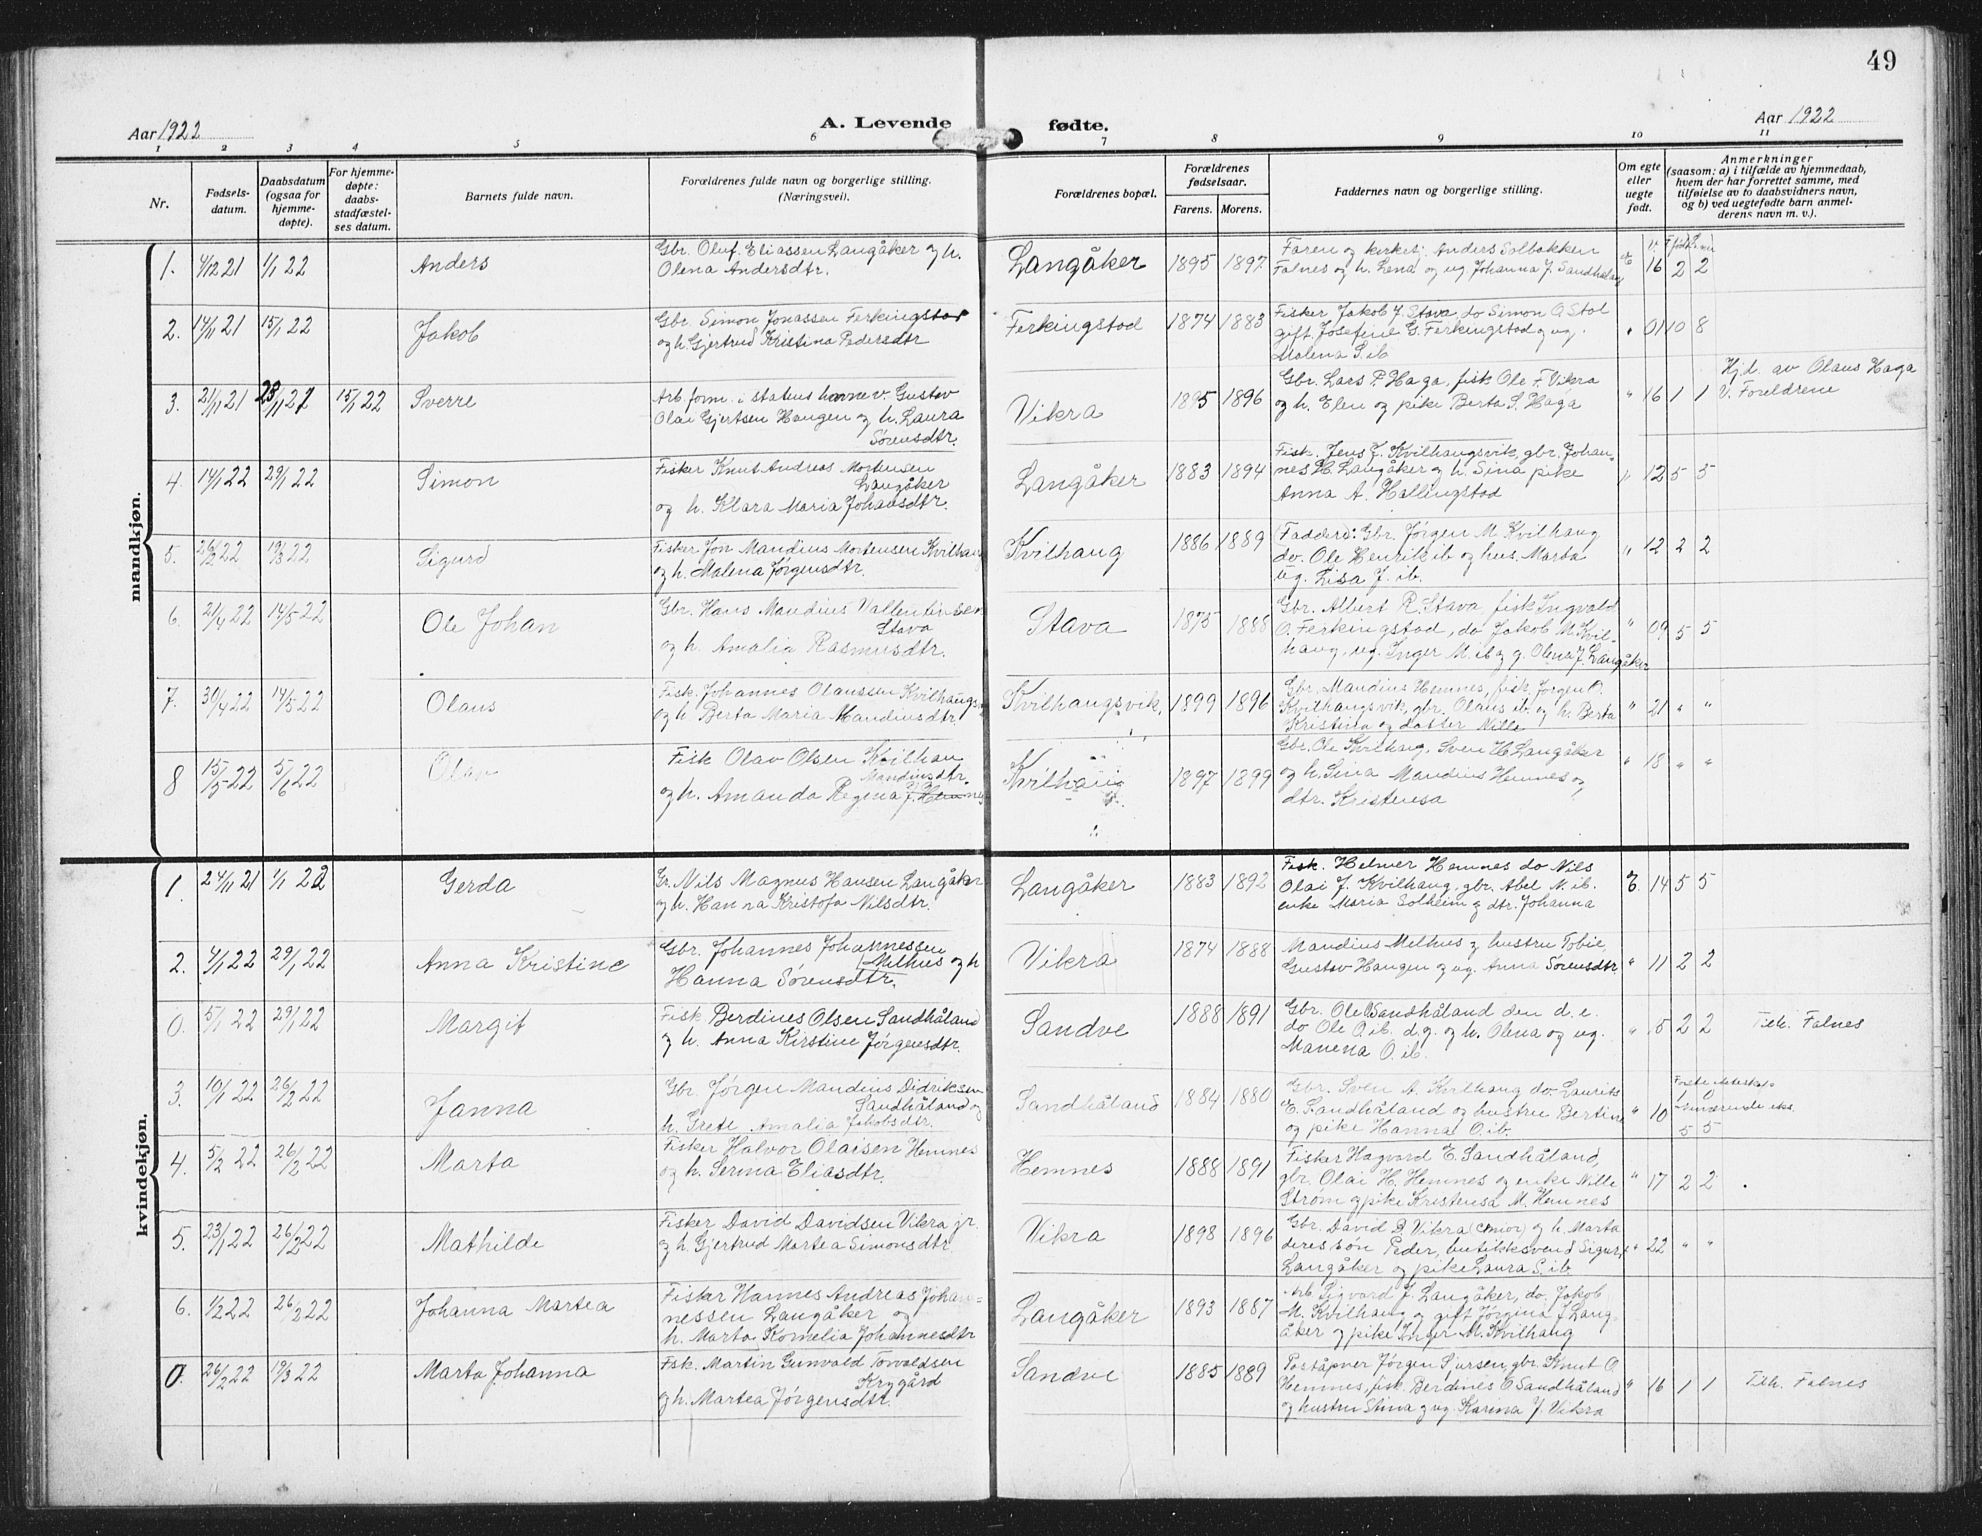 49
Aar 1922
A. Levende fødte.
Aar 1922
1 2 3 4 5 6 7 8 9 10 11
Nr.
Fødsels-
datum.
Daabsdatum
(ogsaa for
hjemme-
døpte).
For hjemme-
døpte:
daabs-
stadfæstel-
ses datum.
Barnets fulde navn.
Forældrenes fulde navn og borgerlige stilling.
(Næringsvei).
Forældrenes bopæl.
Forældrenes
fødselsaar.
Farens. Morens.
Faddernes navn og borgerlige stilling.
Om egte
eller
uegte
født.
Anmerkninger
(saasom: a) i tilfælde av hjemmedaab,
hvem der har forrettet samme, med
tilføielse av to daabsvidners navn,
og b) ved uegtefødte barn anmel-
derens navn m. v.).
mandkjøn.
1. 4/12 21 1/1 22 Anders
Gbr. Oluf Eliassen Langåker og h.
Olena Andersdtr.
Langåker 1895 1897
Faren og kirkesj. Anders Solbakken
Falnes og h. Lena og ug. Johanna J. Sandhåland
16 2 2
2. 14/11 21 15/1 22 Jakob
Gbr. Simon Jonassen Ferkingstad
og h. Gjertrud Kristina Pedersdtr
Ferkingstad 1874 1883
Fisker Jakob J. Stava, do Simon O. Stol
gift Josefine G. Ferkingstad og ug.
Malena S. ib
" 01 10 8
3. 21/11 21 23/11 21 15/1 22 Sverre
Arb. form. i statens havnev. Gustav
Olai Gjertsen Haugen og h. Laura
Sørensdtr.
Vikra 1895 1896
Gbr. Lars P. Haga, fisk Ole F. Vikra
og h. Elen og pike Berta S. Haga
" 16 1 1
Hjd. av Olaus Haga
V. Foreldrene
4. 14/1 22 29/1 22 Simon
Fisker Knut Andreas Mortensen
Langåker
og h. Klara Maria Johansdtr.
Langåker 1883 1894
Fisk. Jens J. Kvilhaugsvik, gbr. Johan-
nes H. Langåker og h. Sina pike
Anna A. Hallingstad
" 12 5 5
5. 26/2 22 19/3 22 Sigurd
Fisker Jon Mandius Mortensen Kvilhaug
og h. Malena Jørgensdtr.
Kvilhaug 1886 1889
(Fadderd: Gbr. Jørgen M. Kvilhaug
do. Ole Henrik ib og hus. Marta
ug. Lisa J. ib.
" 12 2 2
6. 21/4 22 14/5 22 Ole Johan
Gbr. Hans Mandius Vallentinsen
Stava
og h. Amalia Rasmusdtr.
Stava 1875 1888
Gbr. Albert R. Stava, fisk Ingvald
O. Ferkingstad, do Jakob M. Kvil-
haug, ug. Inger M. ib og g. Olena J. Langåker
" 09 5 5
7. 30/4 22 14/5 22 Olaus
Fisk. Johannes Olaussen Kvilhaugsv
og h. Berta Maria Mandiusdtr.
Kvilhaugsvik. 1899 1896
Gbr. Mandius Hemnes, fisk. Jørgen O.
Kvilhaugsvik, gbr. Olaus ib. og h. Berta
Kristina og datter Nille
" 21 " "
8 15/5 22 5/6 22 Olav
Fisk Olav Olsen Kvilhau
Mandiusdtr.
og h. Amanda Regina J. Hemnes
Kvilhaug 1897 1899
Gbr. Ole Kvilhaug, Sven H. Langåker
og h. Sina Mandius Hemnes og
dtr. Kristensa
" 18 " "
kvindekjøn.
1. 24/11 21 1/1 22 Gerda
Gr. Nils Magnus Hansen Langåker
og h. Hanna Kristofa Nilsdtr.
Langåker 1883 1892
Fisk. Helmer Hemnes do Nils
Olai J. Kvilhaug, gbr. Abel N. ib.
enke Maria Solheim og dtr. Johanna
E. 14 5 5
2. 4/1 22 29/1 22 Anna Kristine
Gbr. Johannes Johannessen
Melhus og h
Hanna Sørensdtr.
Vikra 1874 1888
Mandius Melhus og hustru Tobie,
Gustav Haugen og ug. Anna Sørensdtr
" 11 2 2
0. 5/1 22 29/1 22 Margit
Fisk Berdines Olsen Sandhåland
og h. Anna Kirstine Jørgensdtr.
Sandve 1888 1891
Gbr. Ole Sandhåland den d. e.
do Ole O. ib. d. y. og h. Olena og ug.
Manena O. ib.
" 15 2 2
Tilh. Falnes
3. 10/1 22 26/2 22 Janna
Gbr. Jørgen Mandius Didriksen
Sandhåland og
h. Grete Amalia Jakobsdtr.
Sandhåland 1884 1880
Gbr. Sven A. Kvilhaug do. Laurits
E. Sandhåland og hustru Bertine
og pike Hanna O. ib.
" 10
Første ekteskab
1 0
Nuværende eks.
5 5
4. 5/2 22 26/2 22 Marta
Fisker Halvor Olaisen Hemnes
og h. Serina Eliasdtr.
Hemnes 1888 1891
Fisker Hagvard E. Sandhåland,
gbr. Olai H. Hemnes og enke Nille
Strøm og pike Kristensa M. Hemnes
" 17 2 2
5. 23/1 22 26/2 22 Mathilde
Fisker David Davidsen Vikra jr.
og h. Gjertrud Martea Simonsdtr
Vikra 1898 1896
Gbr. David B. Vikra (senior) og h. Marta
deres søn Peder, butikksvend Sigurd
Langåker og pike Laura S. ib
" 22 " "
6. 1/2 22 26/2 22 Johanna Martea
Fisker Hannes Andreas Johan-
nessen Langåker og
h. Marta Kornelia Johannesdtr
Langåker 1893 1887
Arb Sigvard J. Langåker, do. Jakob
M. Kvilhaug og gift Jørgina J. Lang-
åker og pike Inger M. Kvilhaug
0. 26/2 22 19/3 22 Marta Johanna
Fsk. Martin Gunvald Torvaldsen
Krygård
og h. Martea Jørgensdtr.
Sandve 1885 1889
Poståpner Jørgen Sjursen, gbr. Knut O.
Hemnes, fisk. Berdines O. Sandhåland
og hustru Stina og ug. Karina J. Vikra
" 16 1 1
Tilh. Falnes